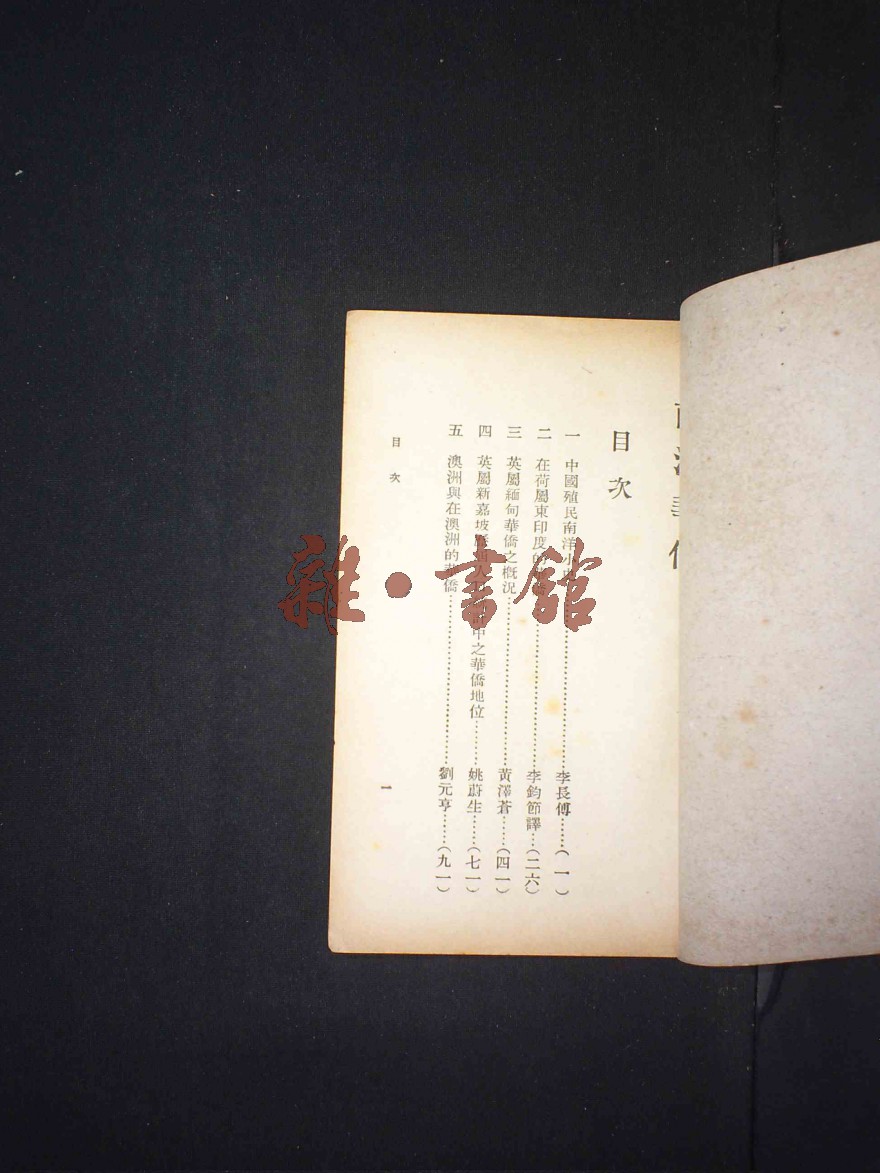 目次
一 中國殖民南洋小史……李長傅……(一)
二 在荷屬東印度的……李鈞節譯……(二六)
三 英屬緬甸華僑之概況……黃澤蒼……(四一)
四 英屬新嘉坡……中之華僑地位……姚蔚生……(七一)
五 澳洲與在澳洲的華僑……劉元亨……(九一)
目次
一
雜·書館